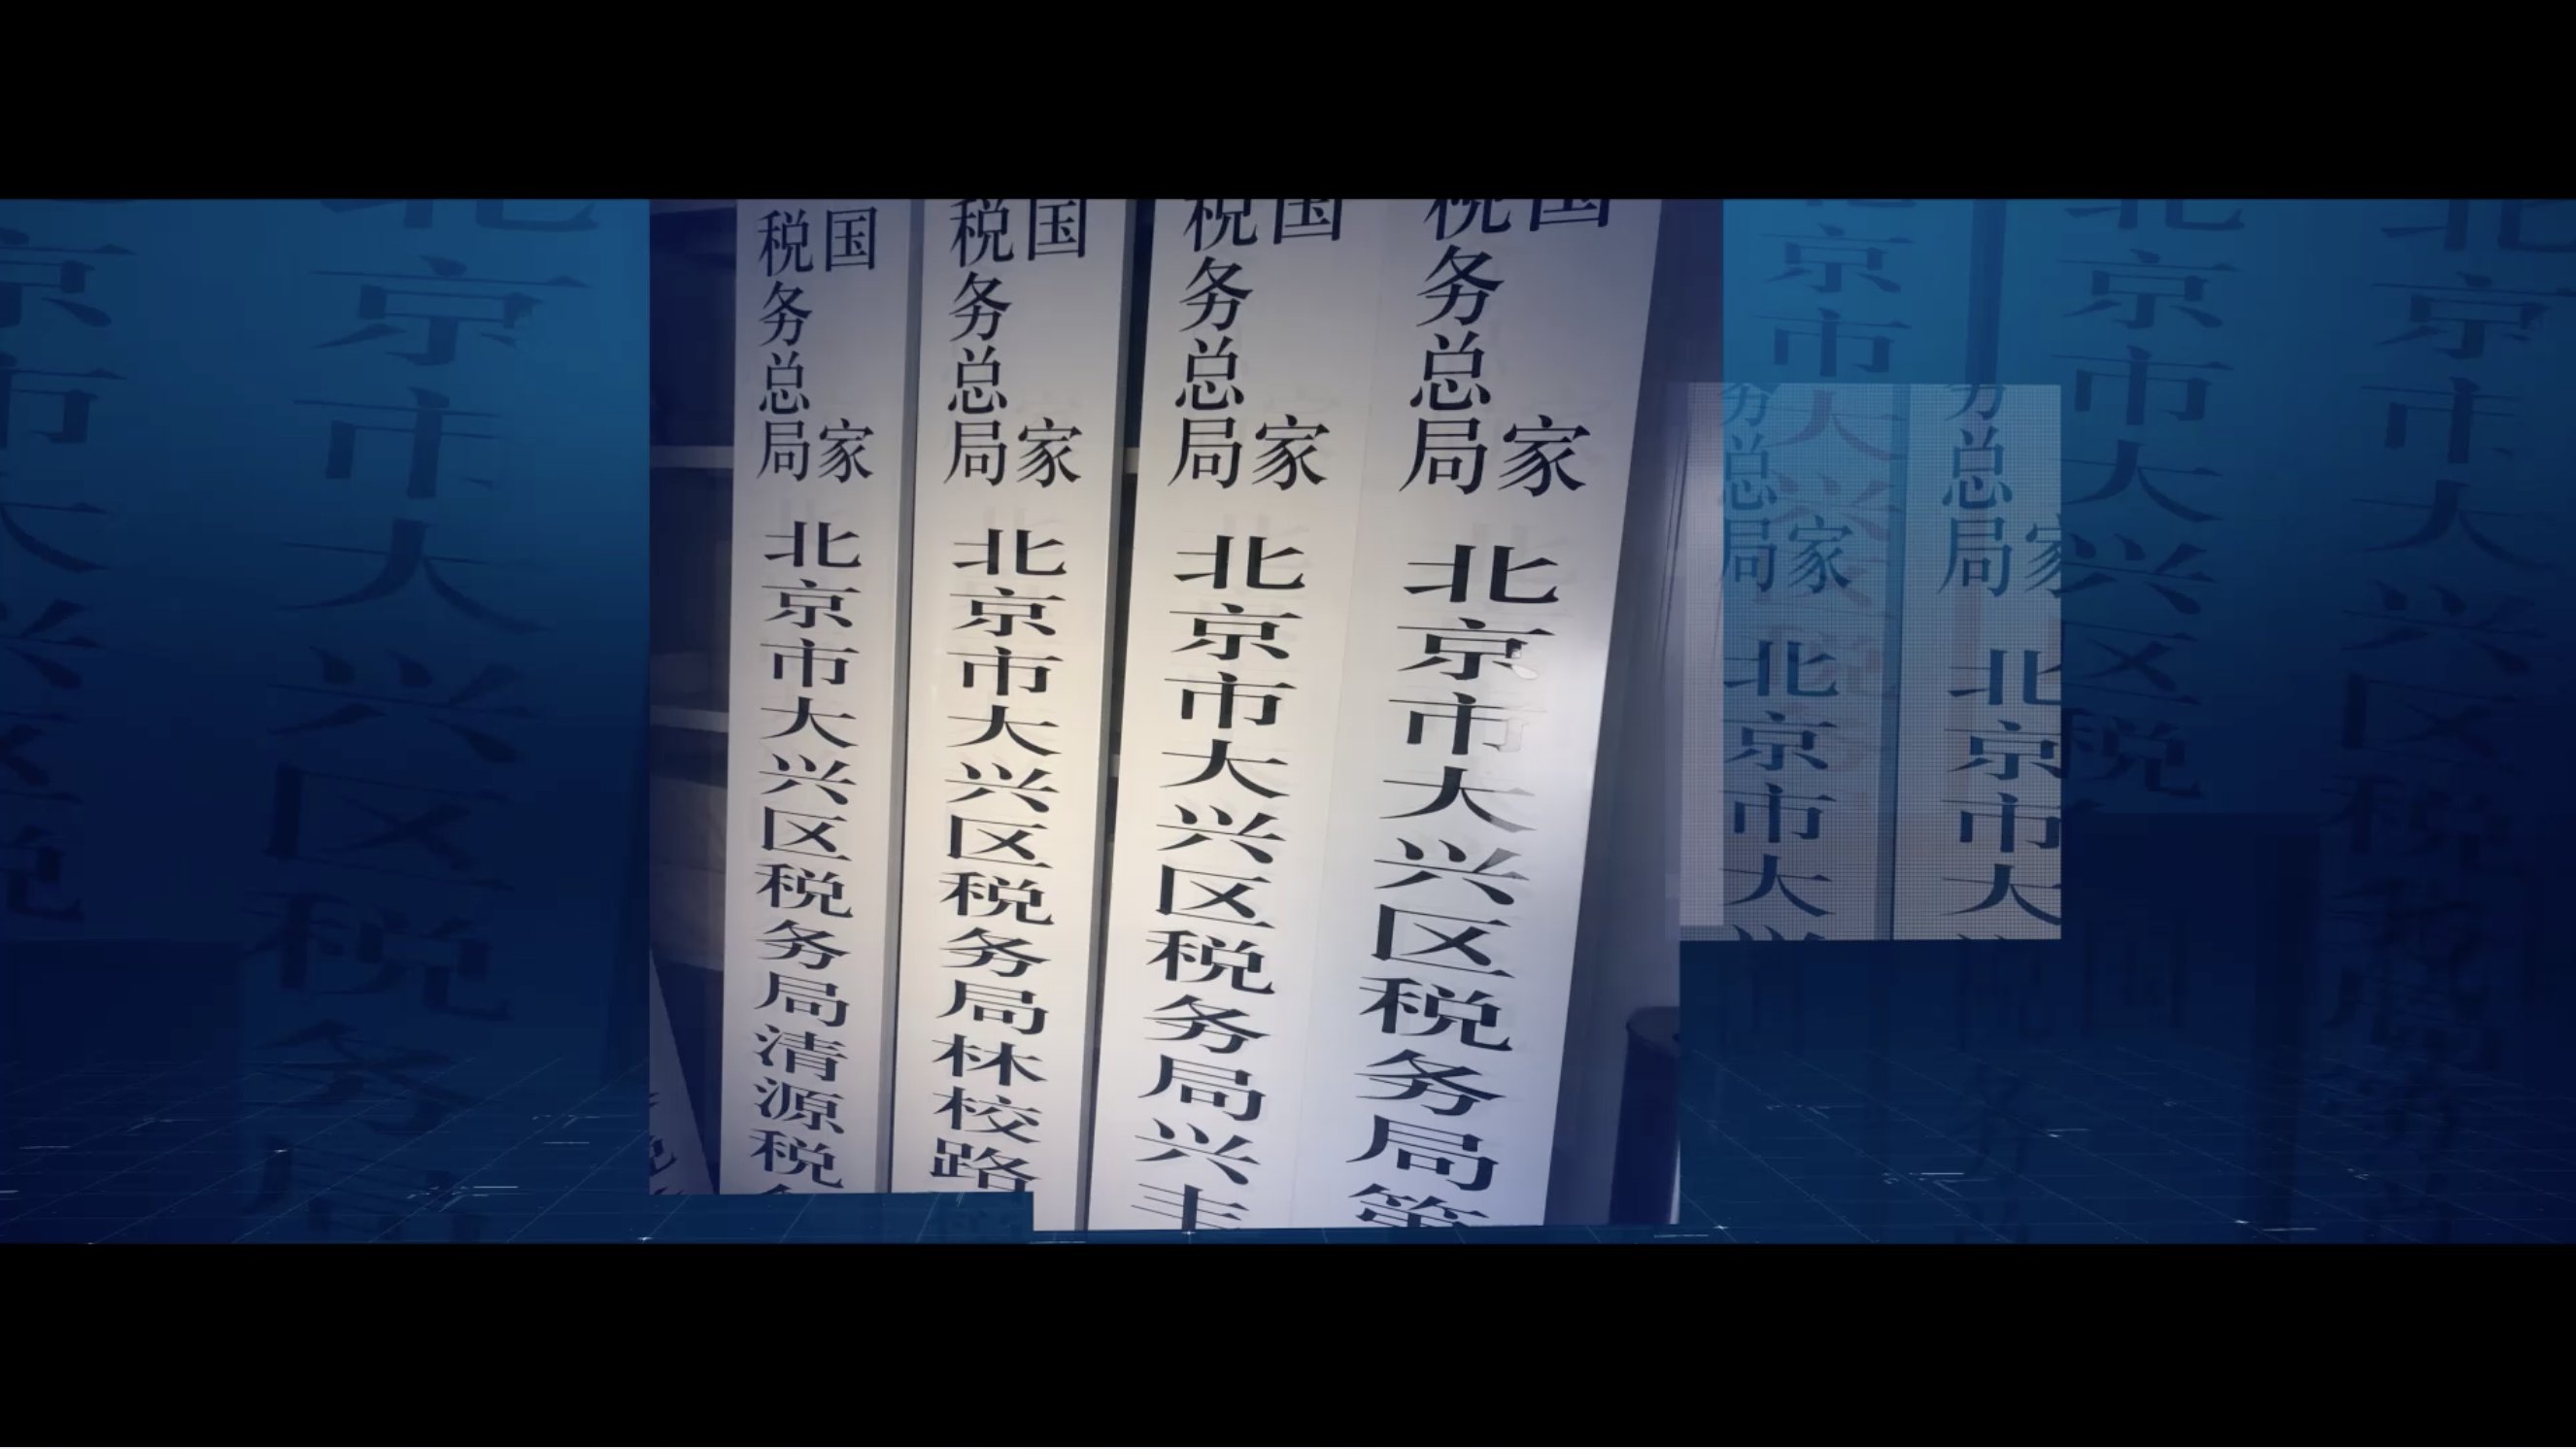 国家
税务总局
北京市大兴区税务局清源税
国家
税务总局
北京市大兴区税务局林校路
国家
税务总局
北京市大兴区税务局兴丰
国家
税务总局
北京市大兴区税务局第
家
务总局
北京市大
家
总局
北京市大